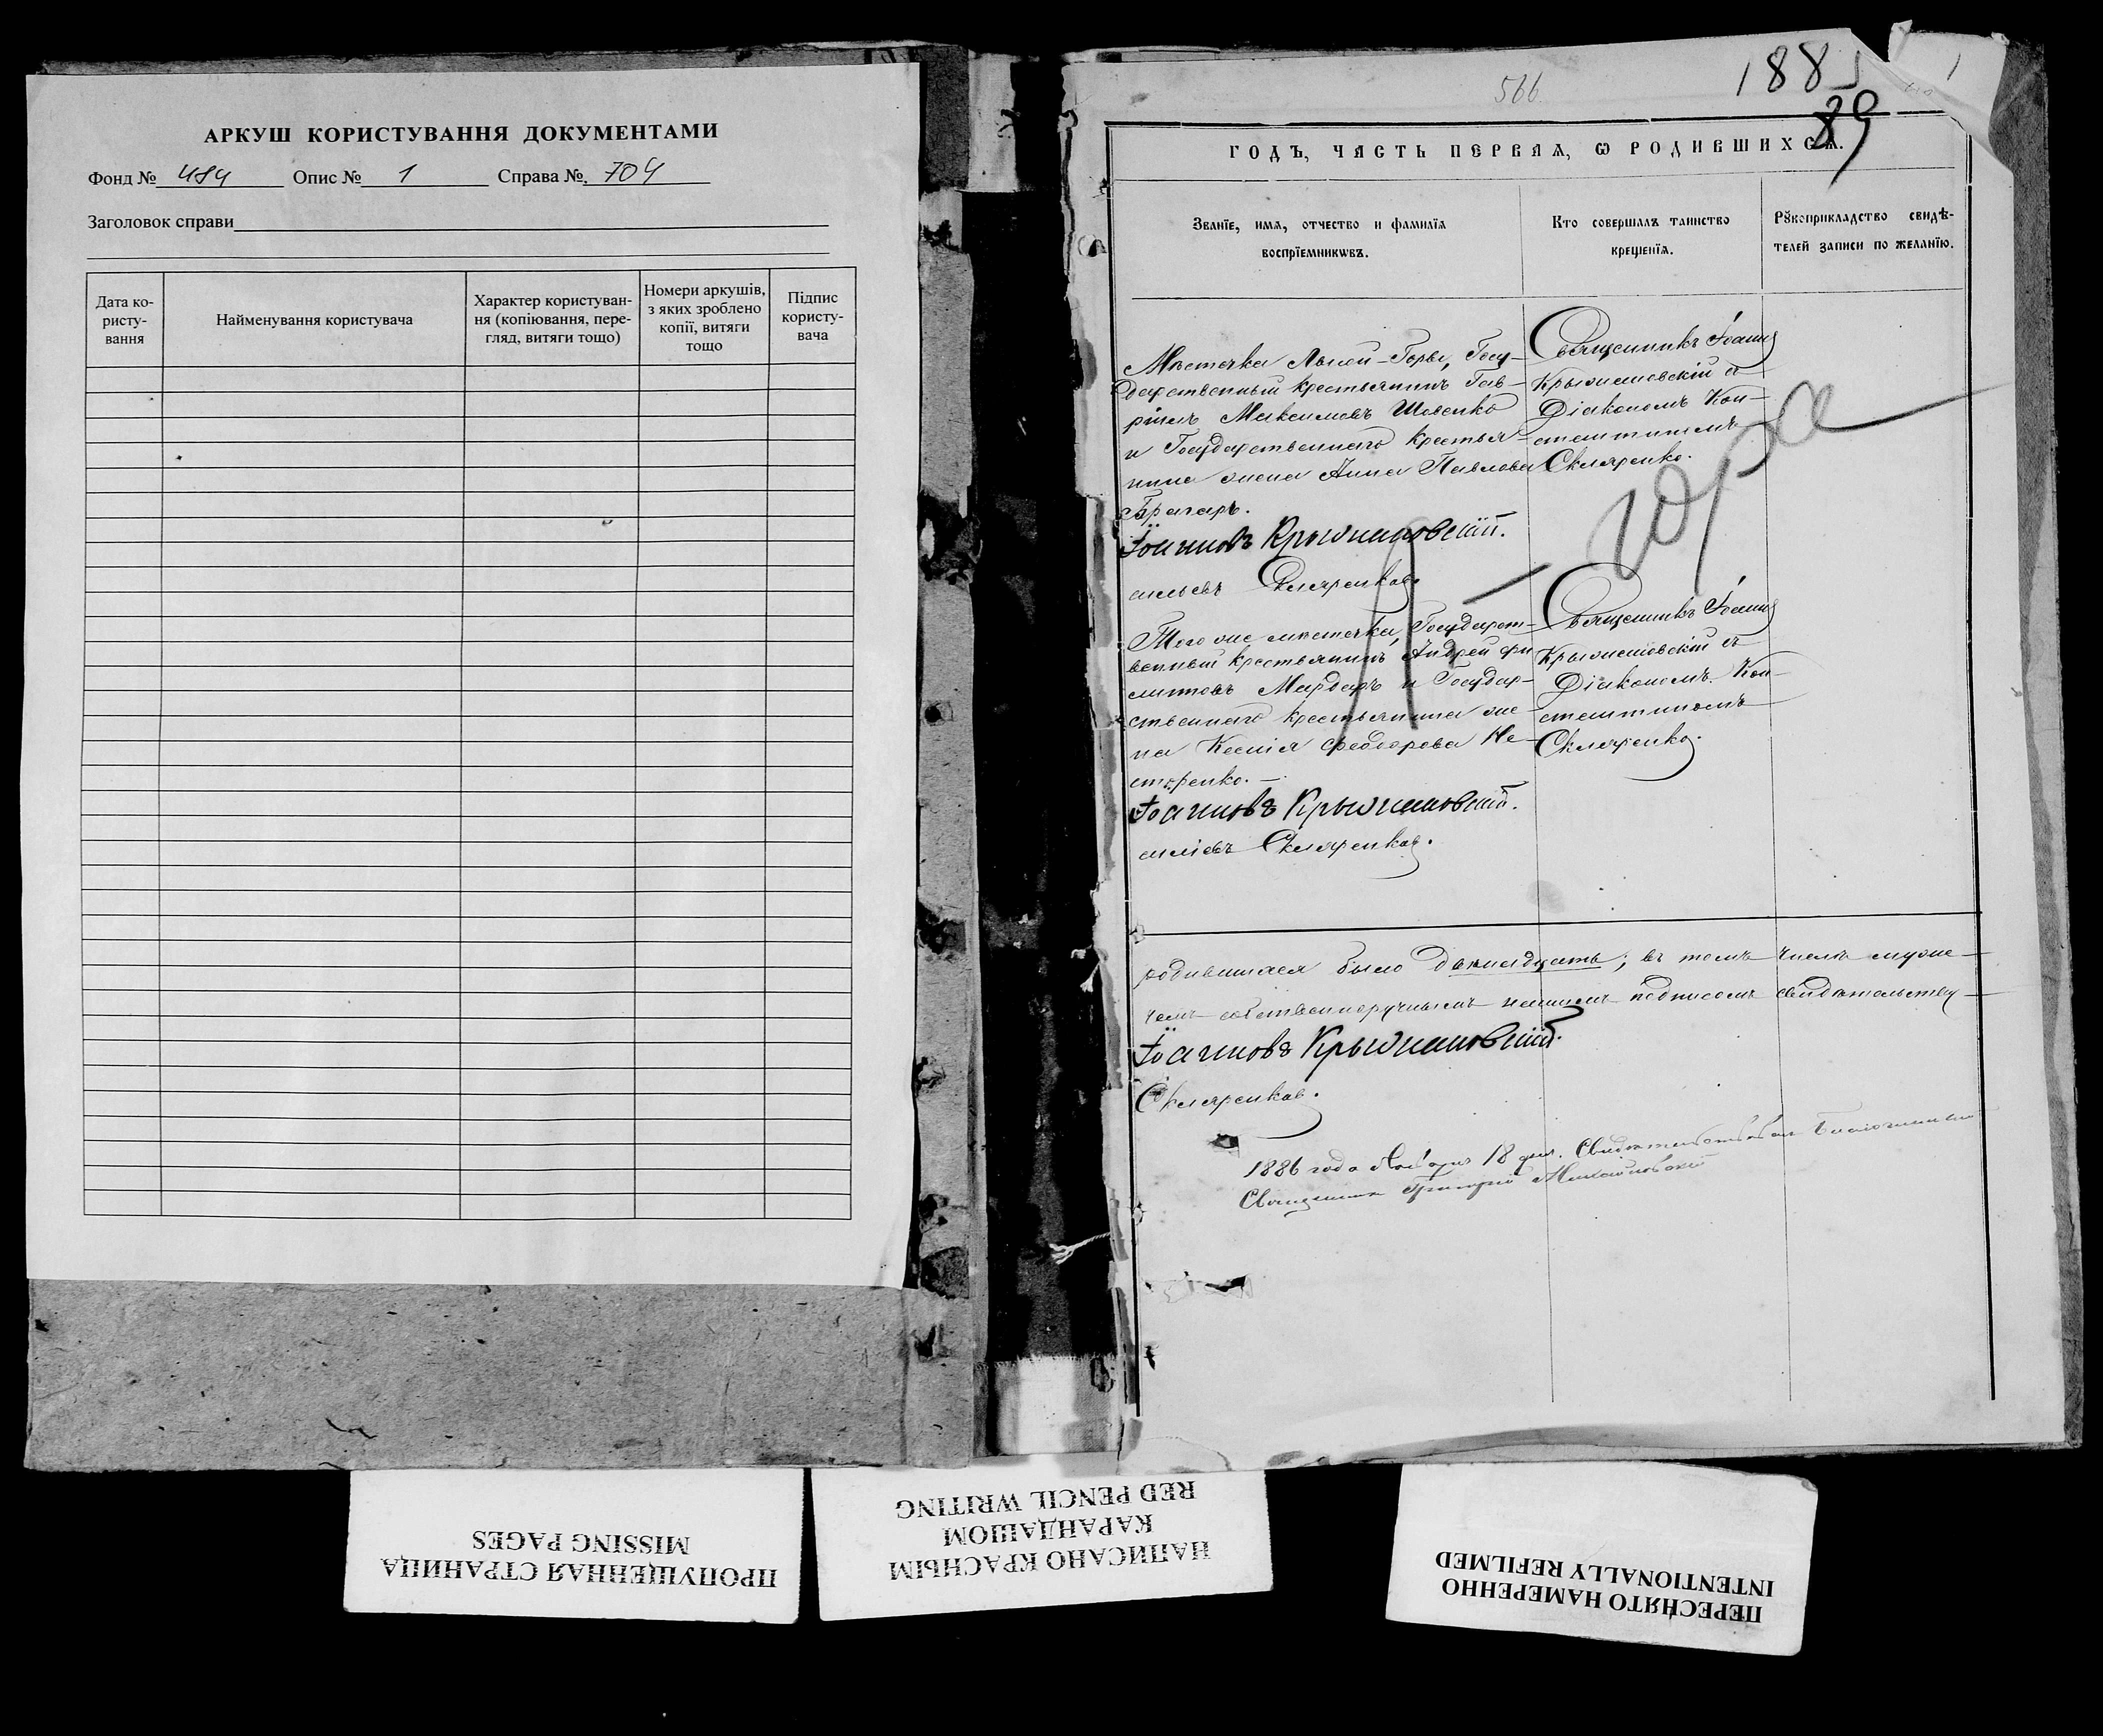 АРКУШ КОРИСТУВАННЯ ДОКУМЕНТАМИ
Фонд № 484 Опис № 1 Справа № 704
Заголовок справи
Дата ко-
ристу-
вання
Найменування користувача
Характер користуван-
ня (копіювання, пере-
гляд, витяги тощо)
Номери аркушів,
з яких зроблено
копії, витяги
тощо
Підпис
користу-
вача
566
1885
1
89
ГОДЪ, ЧАСТЬ ПЕРВАЯ, Ѡ РОДИВШИХСѦ.
Званїе, имѧ, отчество и фамилїѧ
воспрїемникѡвъ.
Кто совершалъ таинство
крещенїѧ.
Рꙋкоприкладство свидѣ-
телей записи по желанїю.
Мѣстечка Лысой-Горы, Госу-
дарственный крестьянинъ Гав-
рiилъ Максимовъ Шовенко
и Государственнаго крестья-
нина жена Анна Павлова
Священникъ Іоаннъ
Крыжановскій съ
Діакономъ Кон-
стантиномъ
Скляренко.
Іоанновъ Крыжановскій.
Скляренковъ.
гора
Того же мѣстечка, Государст-
венный крестьянинъ Андрей Фи
липповъ Мардаръ и Государ-
ственнаго крестьянина же-
на Ксенія Федорова Не-
стеренко.
Священникъ Іоаннъ
Крыжановскій съ
Діакономъ Кон-
стантиномъ
Скляренко.
Іоанновъ Крыжановскій.
Скляренковъ.
родившихся было двѣнадцать; въ томъ числѣ муже-
чемъ собственноручнымъ нашимъ подписомъ свидѣтельству-
Іоанновъ Крыжановскій.
Скляренковъ.
1886 года 18 дня. Свидѣтельствовалъ Благочинный
Священникъ Григорій
ПРОПУЩЕННАЯ СТРАНИЦА
MISSING PAGES
НАПИСАНО КРАСНЫМ
КАРАНДАШОМ
RED PENCIL WRITING
ПЕРЕСНЯТО НАМЕРЕННО
INTENTIONALLY REFILMED